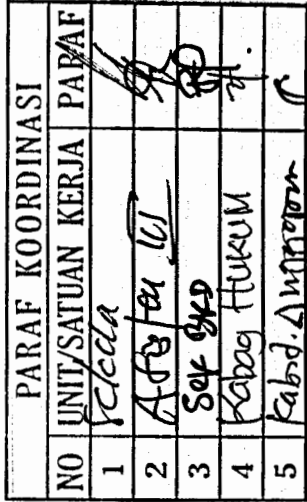 PARAF KOORDINASI
NO UNIT/SATUAN KERJA PARAF
1 Sekda
2 Asisten III
3 Sek BKD
4 Kabag HUKUM
5 Kabid. Anggaran